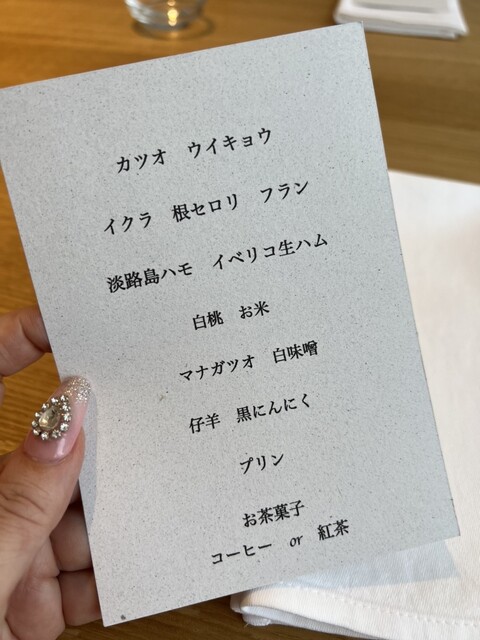 カツオ　ウイキョウ
イクラ　根セロリ　フラン
淡路島ハモ　イベリコ生ハム
白桃　お米
マナガツオ　白味噌
仔羊　黒にんにく
プリン
お茶菓子
コーヒー　or　紅茶